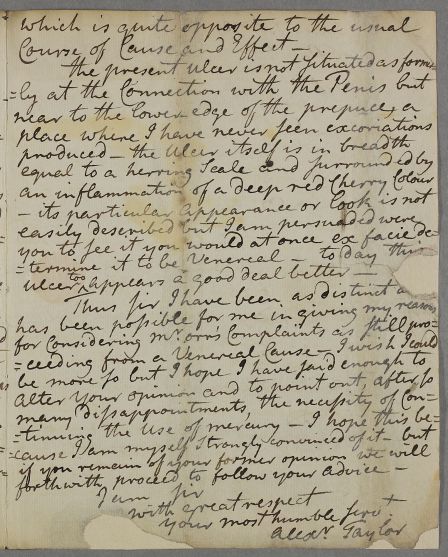 which is quite opposite to the usual
Course of Cause and Effect –
The present ulcer is not situated as former
=ly at the Connection with the Penis but
near to the lower edge of the prepuce, a
place where I have never seen excoriations
produced – the Ulcer itself is in breadth
equal to a herring Scale and surrounded by
an inflammation of a deep red Cherry Colour
– its particular appearance or look is not
easily described but I am persuaded were
you to see it you would at once ex facie de=
=termine it to be Venereal – to day this
ulcer too appears a good deal better –
Thus Sir I have been as distinct as
has been possible for me in giving my reasons
for Considering Mr. Orr's Complaints as still pro=
=ceeding from a Venereal Cause – I wish I could
be more so but I hope I have said enough to
alter your opinion and to point out, after so
many disappointments, the necessity of Con=
=tinuing the Use of mercury – I hope this be=
=cause I am myself Strongly convinced of it – but
if you remain of your former opinion we will
forthwith proceed to follow your advice –
I am Sir
with great respect
your most humble Servt
Alexr. Taylor